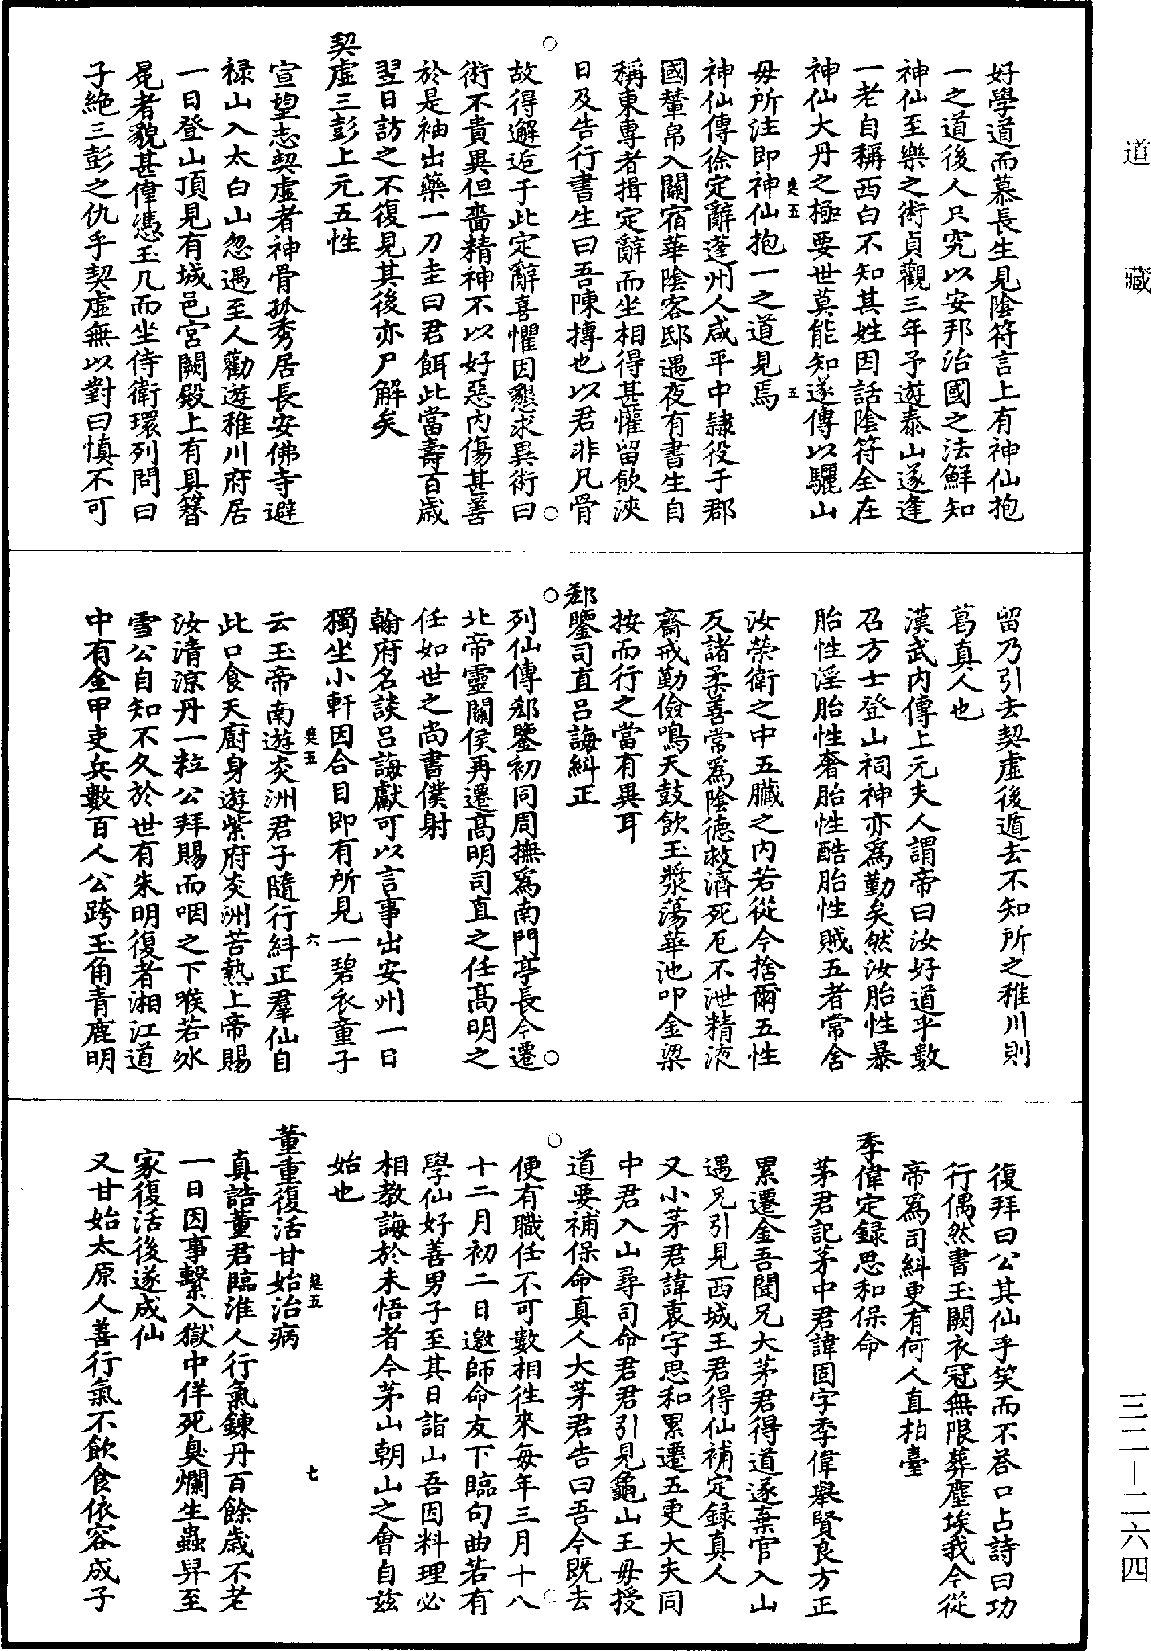 道藏
好學道而慕長生見陰符言上有神仙抱
一之道後人只究以安邦治國之法鮮知
神仙至樂之術貞觀三年予遊泰山遂逢
一老自稱西白不知其姓因話陰符全在
神仙大丹之極要世莫能知遂傳以驪山
毋所注即神仙抱一之道見焉
神仙傳徐定辭蓬州人咸平中隸役于郡
國輦帛入關宿華陰客邸遇夜有書生自
稱東專者揖定辭而坐相得甚懽留飲浹
日及告行書生曰吾陳摶也以君非凡骨
故得邂逅于此定辭喜懼因懇求異術曰
術不貴異但嗇精神不以好惡內傷甚善
於是袖出藥一刀圭曰君餌此當壽百歲
翌日訪之不復見其後亦尸解矣
契虛三彭上元五性
宣室志契虛者神骨孤秀居長安佛寺避
祿山入太白山忽遇至人勸遊稚川府居
一日登山頂見有城邑宮闕殿上有具簪
冕者貌甚偉憑玉几而坐侍衛環列問曰
子絶三彭之仇乎契虛無以對曰慎不可
留乃引去契虛後遁去不知所之稚川則
葛真人也
漢武內傳上元夫人謂帝曰汝好道乎數
召方士登山祠神亦為勤矣然汝胎性暴
胎性淫胎性奢胎性酷胎性賊五者常舍
汝榮衛之中五臟之內若從今捨爾五性
反諸柔善常為陰德救濟死厄不泄精液
齋戒勤儉鳴天鼓飲玉漿蕩華池叩金梁
按而行之當有異耳
郄鑒司直呂誨糾正
列仙傳郄鑒初同周撫為南門亭長今遷
北帝靈關侯再遷高明司直之任高明之
任如世之尚書僕射
翰府名談呂誨獻可以言事出安州一日
獨坐小軒因合目即有所見一碧衣童子
云玉帝南遊炎洲君子隨行糾正羣仙自
此口食天廚身遊紫府炎洲苦熱上帝賜
汝清涼丹一粒公拜賜而咽之下喉若氷
雪公自知不久於世有朱明復者湘江道
中有金甲吏兵數百人公跨玉角青鹿明
復拜曰公其仙乎笑而不荅口占詩曰功
行偶然書玉闕衣冠無限葬塵埃我今從
帝為司糾更有何人直柏臺
季偉定錄思和保命
茅君記茅中君諱固字季偉舉賢良方正
累遷金吾聞兄大茅君得道遂棄官入山
遇兄引見西城王君得仙補定錄真人
又小茅君諱衷字思和累遷五更大夫同
中君入山尋司命君君引見龜山王毋授
道要補保命真人大茅君告曰吾今既去
便有職任不可數相徃來每年三月十八
十二月初二日邀師命友下臨句曲若有
學仙好善男子至其日詣山吾因料理必
相教誨於未悟者今茅山朝山之會自茲
始也
董重復活甘始治病
真誥董君臨淮人行氣鍊丹百餘歲不老
一日因事繫入獄中佯死臭爛生蟲昇至
家復活後遂成仙
又甘始太原人善行氣不飲食依容成子
三二—二六四